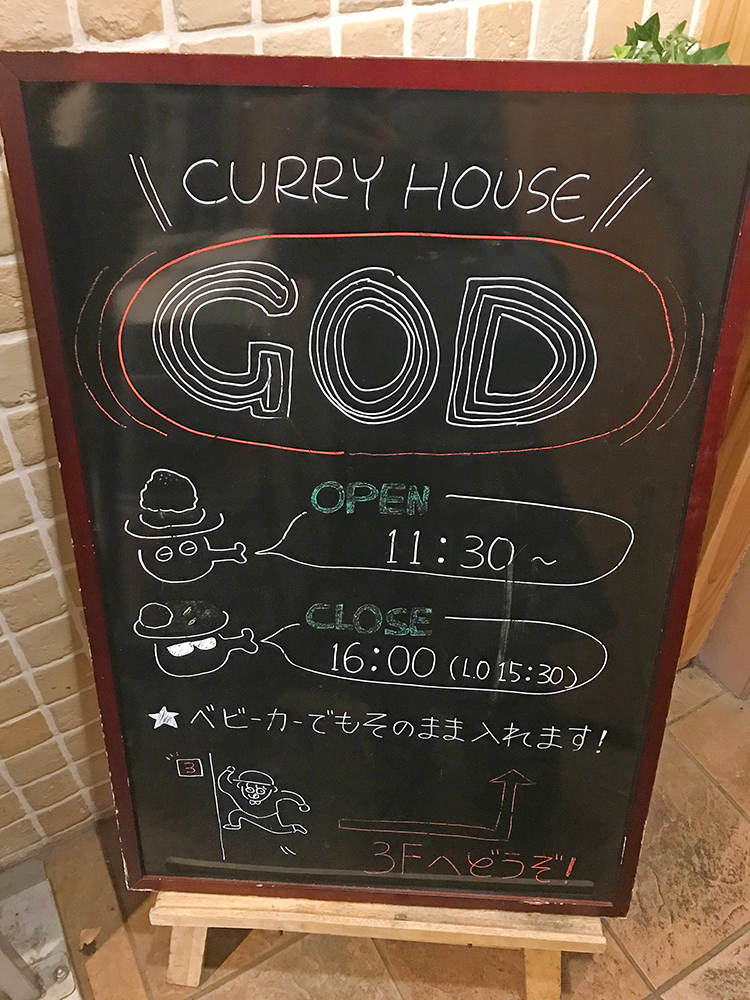 CURRY HOUSE
GOD
OPEN
11:30~
CLOSE
16:00 (L.O 15:30)
★ベビーカーでもそのまま入れます!
3
3Fへどうぞ!